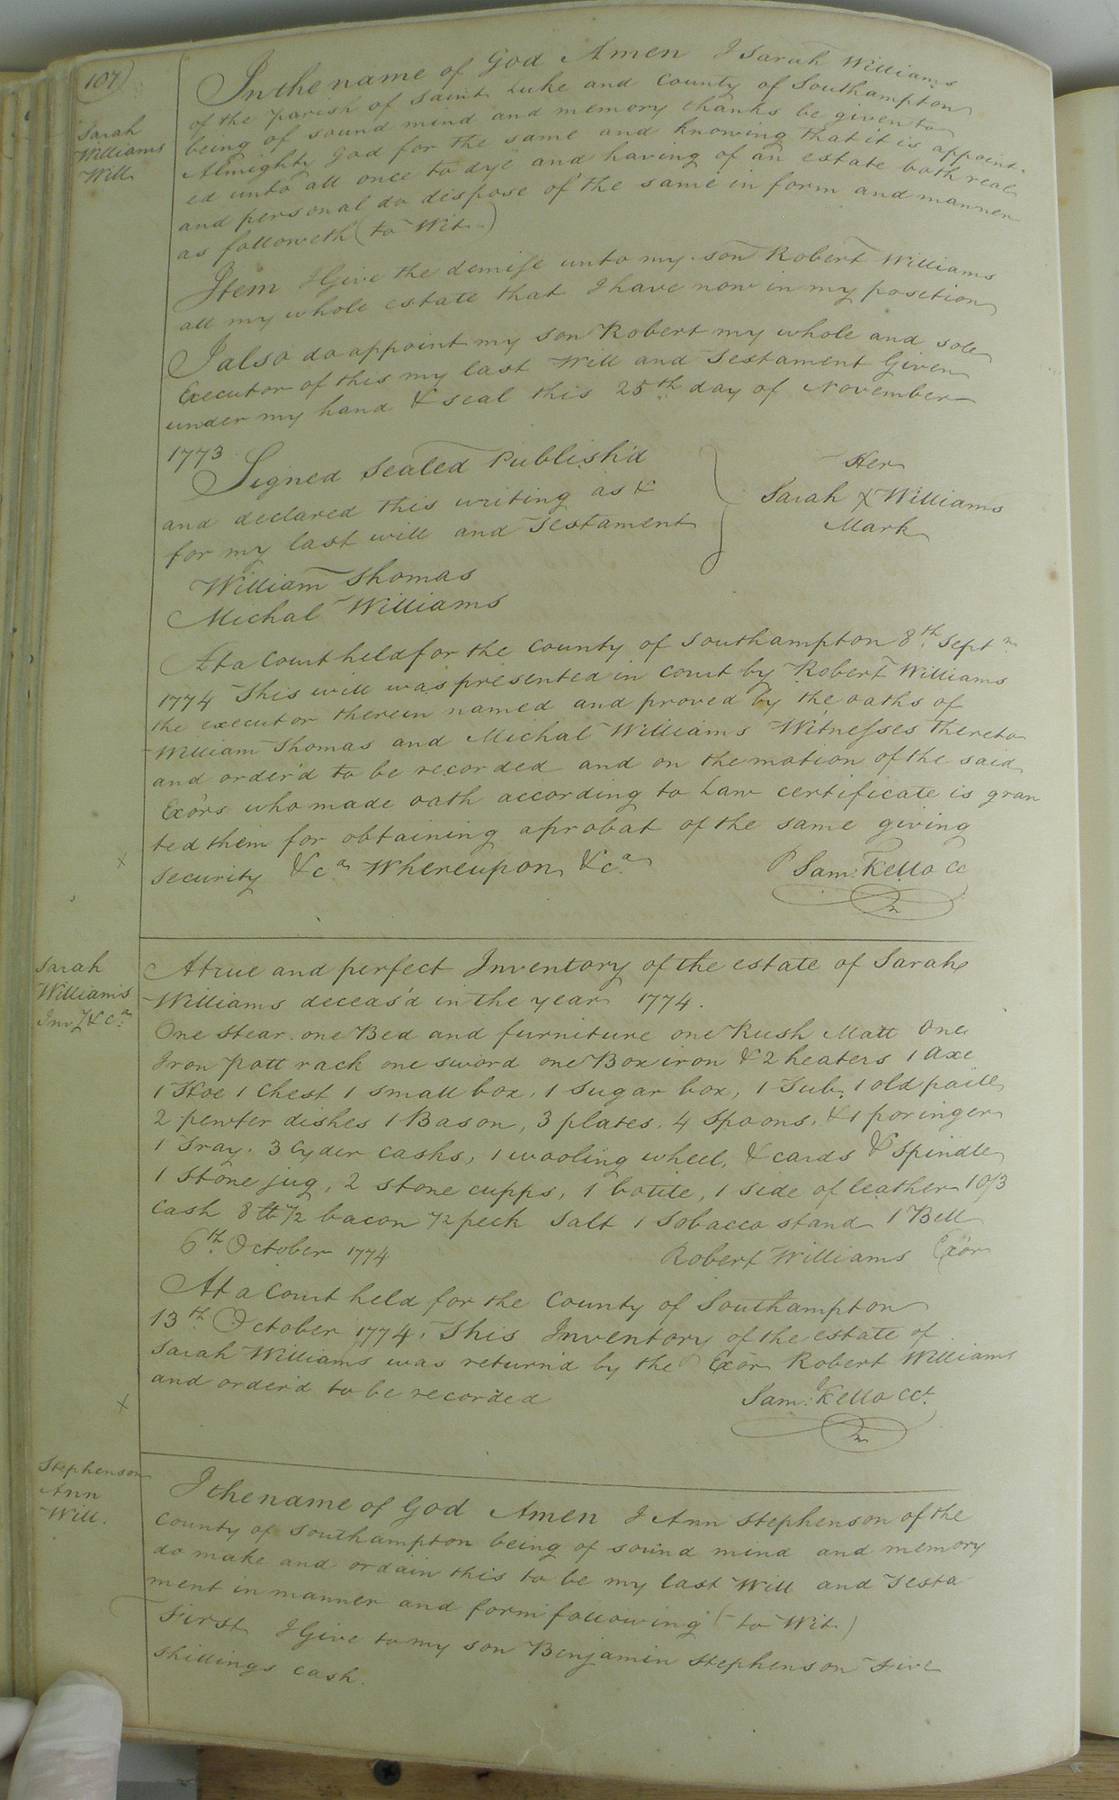 107
Sarah
Williams
Will
In the name of God Amen I Sarah Williams
of the parish of Saint Luke and County of Southampton
being of sound mind and memory thanks be given to
Almighty God for the same and knowing that it is appoint-
ed unto all once to dye and having of an estate both real
and personal do dispose of the same in form and manner
as followeth (to Wit.)
Item I Give the demise unto my son Robert Williams
all my whole estate that I have now in my position
I also do appoint my son Robert my whole and sole
Executor of this my last Will and Testament Given
under my hand & seal this 25th day of November
1773
Signed Sealed Publish'd
and declared this writing as &
for my last will and Testament
Her
Sarah X Williams
Mark
William Thomas
Michal Williams
At a Court held for the County of Southampton 8th Septr
1774 This will was presented in court by Robert Williams
the executor therein named and proved by the oaths of
William Thomas and Michal Williams Witnesses thereto
and order'd to be recorded and on the motion of the said
Exors who made oath according to Law certificate is gran
ted them for obtaining aprobat of the same giving
security &ca Whereupon &ca
Sam: Kello CC
Sarah
Williams
Invy &ca
A true and perfect Inventory of the estate of Sarah
Williams deceas'd in the year 1774.
One stear. one Bed and furniture one Rush Matt One
Iron pott rack one sword one Box iron & 2 heaters 1 axe
1 Hoe 1 Chest 1 small box, 1 sugar box, 1 Tub, 1 old paill
2 pewter dishes 1 Bason, 3 plates, 4 Spoons, & 1 poringer
1 Tray. 3 Cyder casks, 1 wooling wheel, & cards & Spindle
1 Stone jug, 2 stone cupps, 1 bottle, 1 side of leather 10/3
Cash 8 lb 1/2 bacon 1/2 peck Salt 1 Tobacco stand 1 Bell
6th October 1774
Robert Williams Exor
At a Court held for the County of Southampton
13th October 1774. This Inventory of the estate of
Sarah Williams was return'd by the Exor Robert Williams
and order'd to be recorded
Sam: Kello CCt.
Stephenson
Ann
Will.
I the name of God Amen I Ann Stephenson of the
County of Southampton being of sound mind and memory
do make and ordain this to be my last Will and Testa
ment in manner and form following (to Wit.)
First I Give to my son Benjamin Stephenson Five
shillings cash.